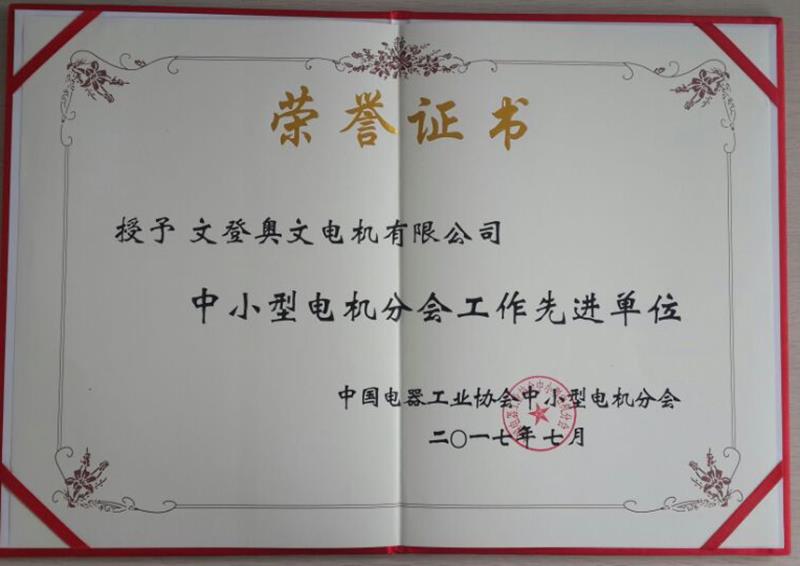 荣誉证书
授予 文登奥文电机有限公司
中小型电机分会工作先进单位
中国电器工业协会中小型电机分会
二〇一七年七月